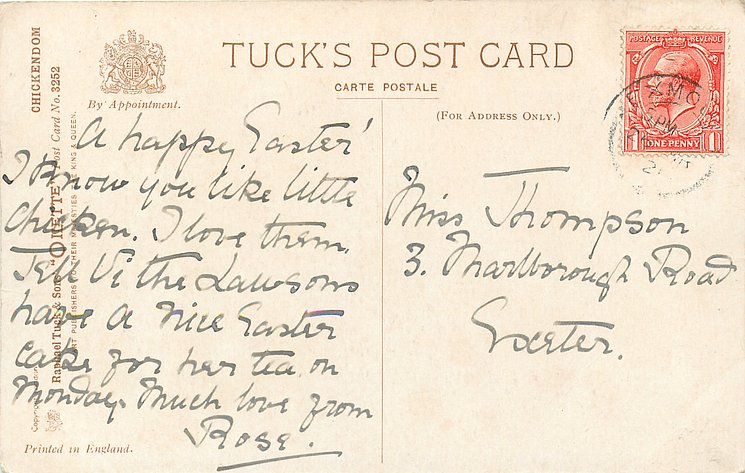 CHICKENDOM
Raphael Tuck & Sons' "OILETTE" Post Card No. 3252
ART PUBLISHERS TO THEIR MAJESTIES THE KING & QUEEN.
By Appointment.
TUCK'S POST CARD
CARTE POSTALE
(FOR ADDRESS ONLY.)
POSTAGE REVENUE
1 ONE PENNY 1
PM
A happy Easter
I know you like little
chicken. I love them.
Tell Vi the Lawsons
have a nice Easter
cake for her tea on
Monday. Much love from
Rose.
Miss Thompson
3. Marlborough Road
Exeter.
Printed in England.